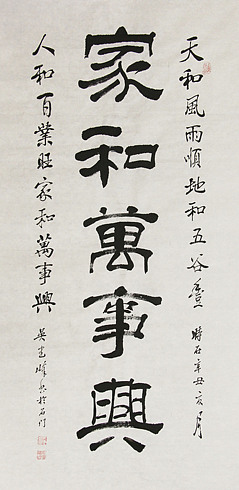 天和風雨順地和五谷豐 時在辛丑亥月
家和萬事興
人和百業旺家和萬事興 吳峰書於石門